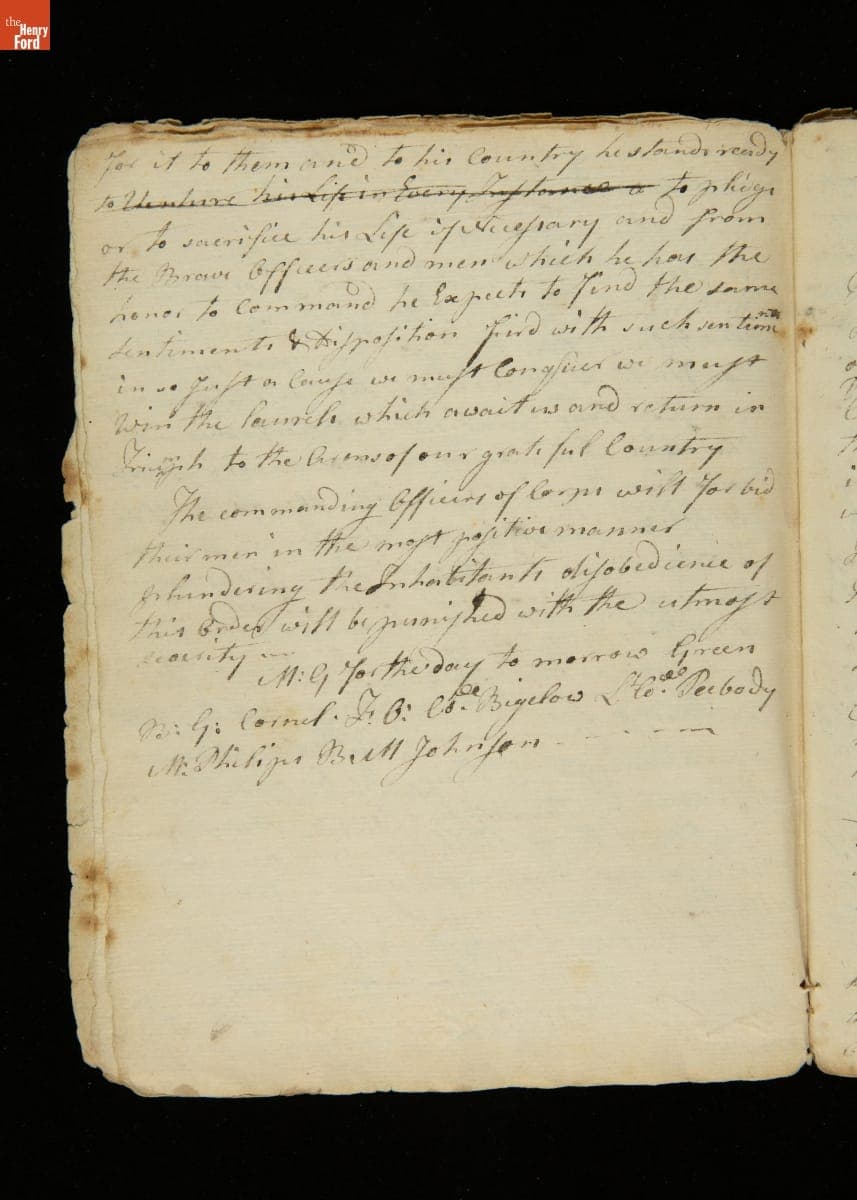 the
Henry
Ford
for it to them and to his Country he stands ready
to Venture his Life in Every Instance a to pledge
or to sacrifice his Life if Necessary and from
the Brave Officers and men which he has the
honor to command he Expects to find the same
sentiments & Disposition fird with such sentiments
in so Just a Cause we must Conquer we must
Win the laurels which await us and return in
Triumph to the Arems of our grateful Country
The commanding Officers of Corps will forbid
their men in the most positive manner
plundering the Inhabitants disobedience of
this order will be punished with the utmost
severity
M: G for the day to morrow Green
B: G: Cornel. F. O: Co. Bigelow Lt Co. Peabody
M. Philips B. M Johnson